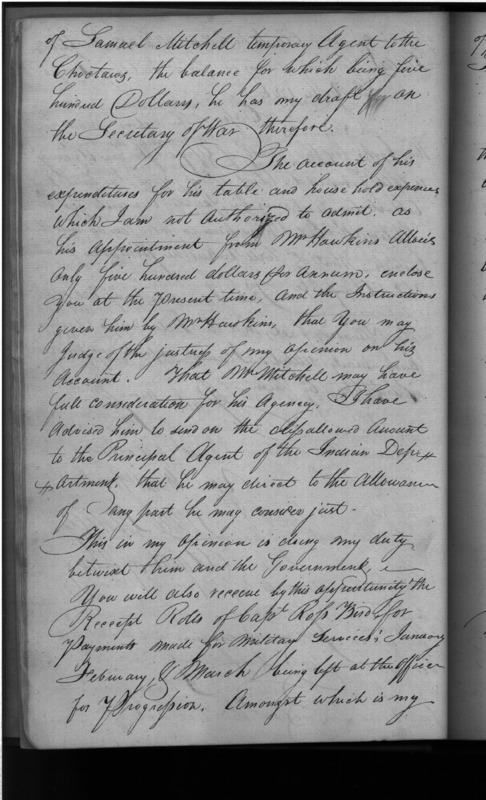 of Samuel Mitchell temporary Agent to the
Choctaws, the balance for which being five
hundred Dollars, he has my draft on
the Secretary of War therefore.
The account of his
expenditures for his table and house hold expences
which I am not Authorized to admit. as
his appointment from Mr Hawkins Allows
only five hundred dollars per Annum, enclose
you at the present time, and the Instructions
given him by Mr Hawkins, that you may
Judge of the justness of my opinion on his
Account. That Mr Mitchell may have
full consideration for his Agency, I have
Advised him to send on the disallowed Amount
to the Principal Agent of the Indian Dep
artment, that he may direct to the Allowance
of any part he may consider just.
This in my opinion is doing my duty
betwixt them and the Government,
You will also receive by this opportunity the
Receipt Rolls of Capt Ross Bird for
payments made for Military Services, January
February, & March being left at the office
for Progression. Amongst which is my